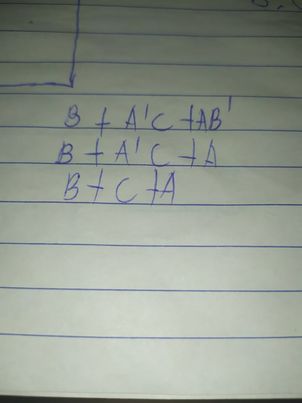 B + A'C + AB'
B + A'C + A
B + C + A